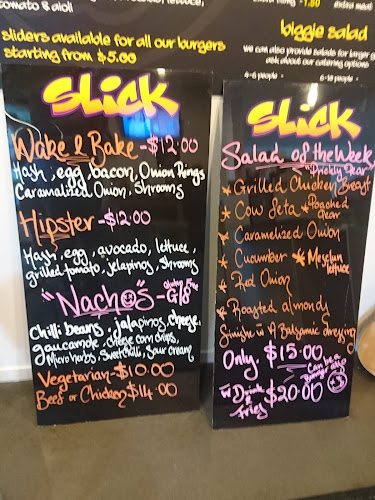 tomato & aioli
sliders available for all our burgers
starting from $5.00
extra meat
biggie salad
we can also provide salads for larger g
ask about our catering options
4-6 people
6-10 people
SLICK
Wake & Bake - $12.00
Hash, egg, bacon, Onion Rings
Caramalized Onion, Shrooms
Hipster - $12.00
Hash, egg, avocado, lettuce,
grilled tomato, jalapinos, Shrooms
"Nachos" - Gluten Free G/8
Chilli beans, jalapinos, cheese,
gaucamole, cheese corn chips,
Microherbs, Sweet Chilli, Sour cream
Vegetarian - $10.00
Beef or Chicken $14.00
SLICK
Salad of the Week
"Prickly Pear"
* Grilled Chicken Breast
* Cow feta * Poached Pear
* Caramelized Onion
* Cucumber * Mesclun lettuce
* Red Onion
* Roasted almondy
Finish w A Balsamic dressing
Only $15.00
Can be a Burger also
+3
w Drink & Fries $20.00